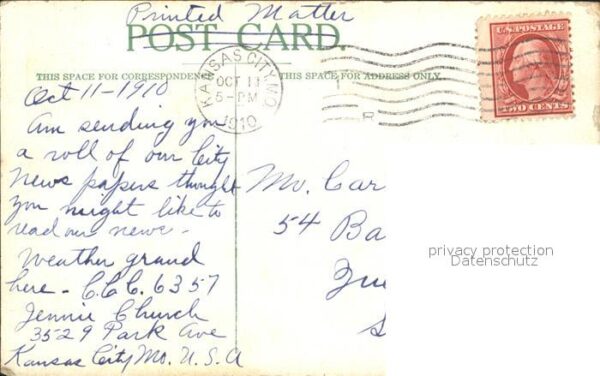 Printed Matter
POST CARD.
U.S. POSTAGE
TWO CENTS
KANSAS CITY, MO.
OCT 11
5-PM
1910
THIS SPACE FOR CORRESPONDENCE
THIS SPACE FOR ADDRESS ONLY.
Oct 11-1910
Am sending you
a roll of our City
News papers thought
you might like to
read our news-
Weather grand
here - C.C.C. 6357
Jennie Church
3529 Park Ave
Kansas City Mo. U.S.A
Car
54 Ba
privacy protection
Datenschutz